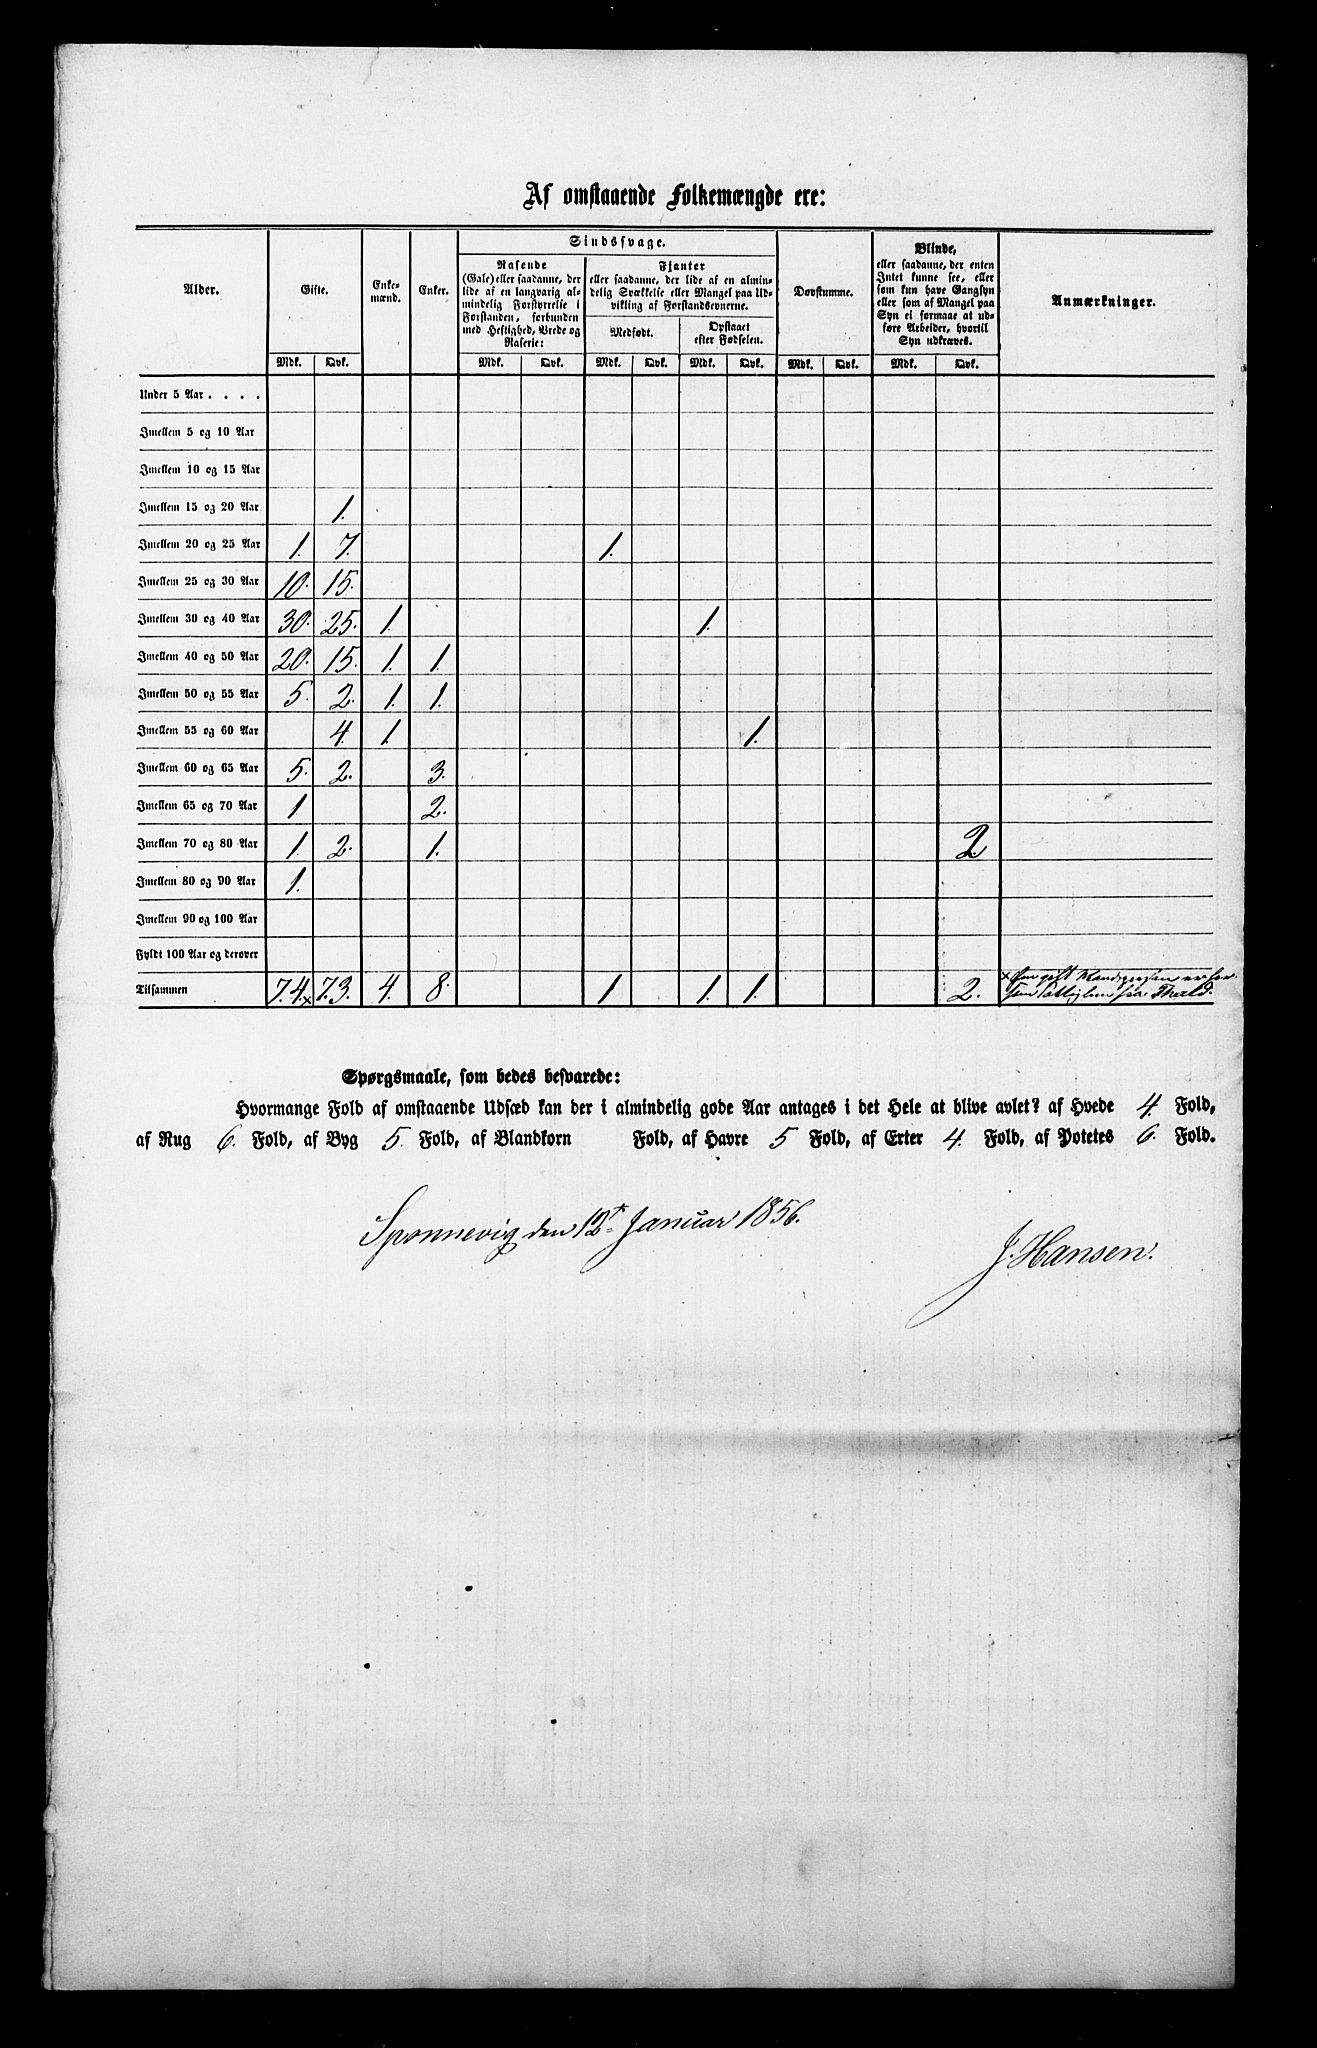 Af omstaaende Folkemængde ere:
Alder. Gifte. Enke-mænd. Enker. Sindssvage. Dovstumme. Anmærkninger.
Rasende
(Gale) eller saadanne, der
lide af en langvarig al-
mindelig Forstyrrelse i
Forstanden, forbunden
med Heftighed, Vrede og
Raserie:
Fjanter
eller saadanne, der lide af en almin-
delig Svækkelse eller Mangel paa Ud-
vikling af Forstandsevnerne.
Medfødt. Opstaaet
efter Fødselen.
Blinde,
eller saadanne, der enten
Intet kunne see, eller
som kun have Gangsyn
eller som af Mangel paa
Syn ei formaae at ud-
føre Arbeider, hvortil
Syn udkræves.
Mdk. Qvk. Mdk. Qvk. Mdk. Qvk. Mdk. Qvk. Mdk. Qvk. Mdk. Qvk.
Under 5 Aar . . . .
Imellem 5 og 10 Aar
Imellem 10 og 15 Aar
Imellem 15 og 20 Aar 1.
Imellem 20 og 25 Aar 1. 7. 1.
Imellem 25 og 30 Aar 10. 15.
Imellem 30 og 40 Aar 30. 25. 1. 1.
Imellem 40 og 50 Aar 20. 15. 1. 1.
Imellem 50 og 55 Aar 5. 2. 1. 1.
Imellem 55 og 60 Aar 4. 1. 1.
Imellem 60 og 65 Aar 5. 2. 3.
Imellem 65 og 70 Aar 1 2.
Imellem 70 og 80 Aar 1. 2. 1. 2
Imellem 80 og 90 Aar 1.
Imellem 90 og 100 Aar
Fyldt 100 Aar og derover
Tilsammen 74.× 73. 4. 8. 1 1. 1. 2. × En gift Mandsperson er
fra
Spørgsmaale, som bedes besvarede:
Hvormange Fold af omstaaende Udsæd kan der i almindelig gode Aar antages i det Hele at blive avlet? af Hvede 4. Fold,
af Rug 6. Fold, af Byg 5. Fold, af Blandkorn Fold, af Havre 5 Fold, af Erter 4. Fold, af Potetes 6. Fold.
Sponnevig den 12te Januar 1856.
J. Hansen.